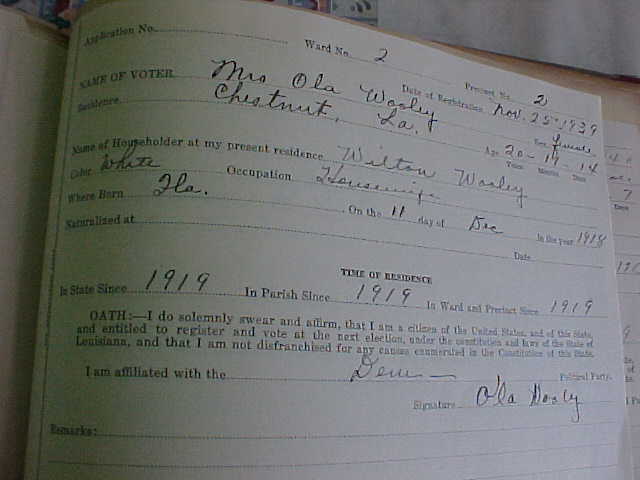 Application No.
Ward No. 2
Precinct No. 2
NAME OF VOTER Mrs Ola Wooley
Date of Registration Nov. 25 - 1939
Residence Chestnut, La.
Sex female
Age 20 - 11 - 14
Years Months Days
Name of Householder at my present residence Wilton Wooley
Color White Occupation Housewife
Where Born Fla. On the 11 day of Dec in the year 1918
Naturalized at Date
TIME OF RESIDENCE
In State Since 1919 In Parish Since 1919 In Ward and Precinct Since 1919
OATH:—I do solemnly swear and affirm, that I am a citizen of the United States, and of this State,
and entitled to register and vote at the next election, under the constitution and laws of the State of
Louisiana, and that I am not disfranchised for any causes enumerated in the Constitution of this State.
I am affiliated with the Dem — Political Party.
Signature Ola Wooly
Remarks: